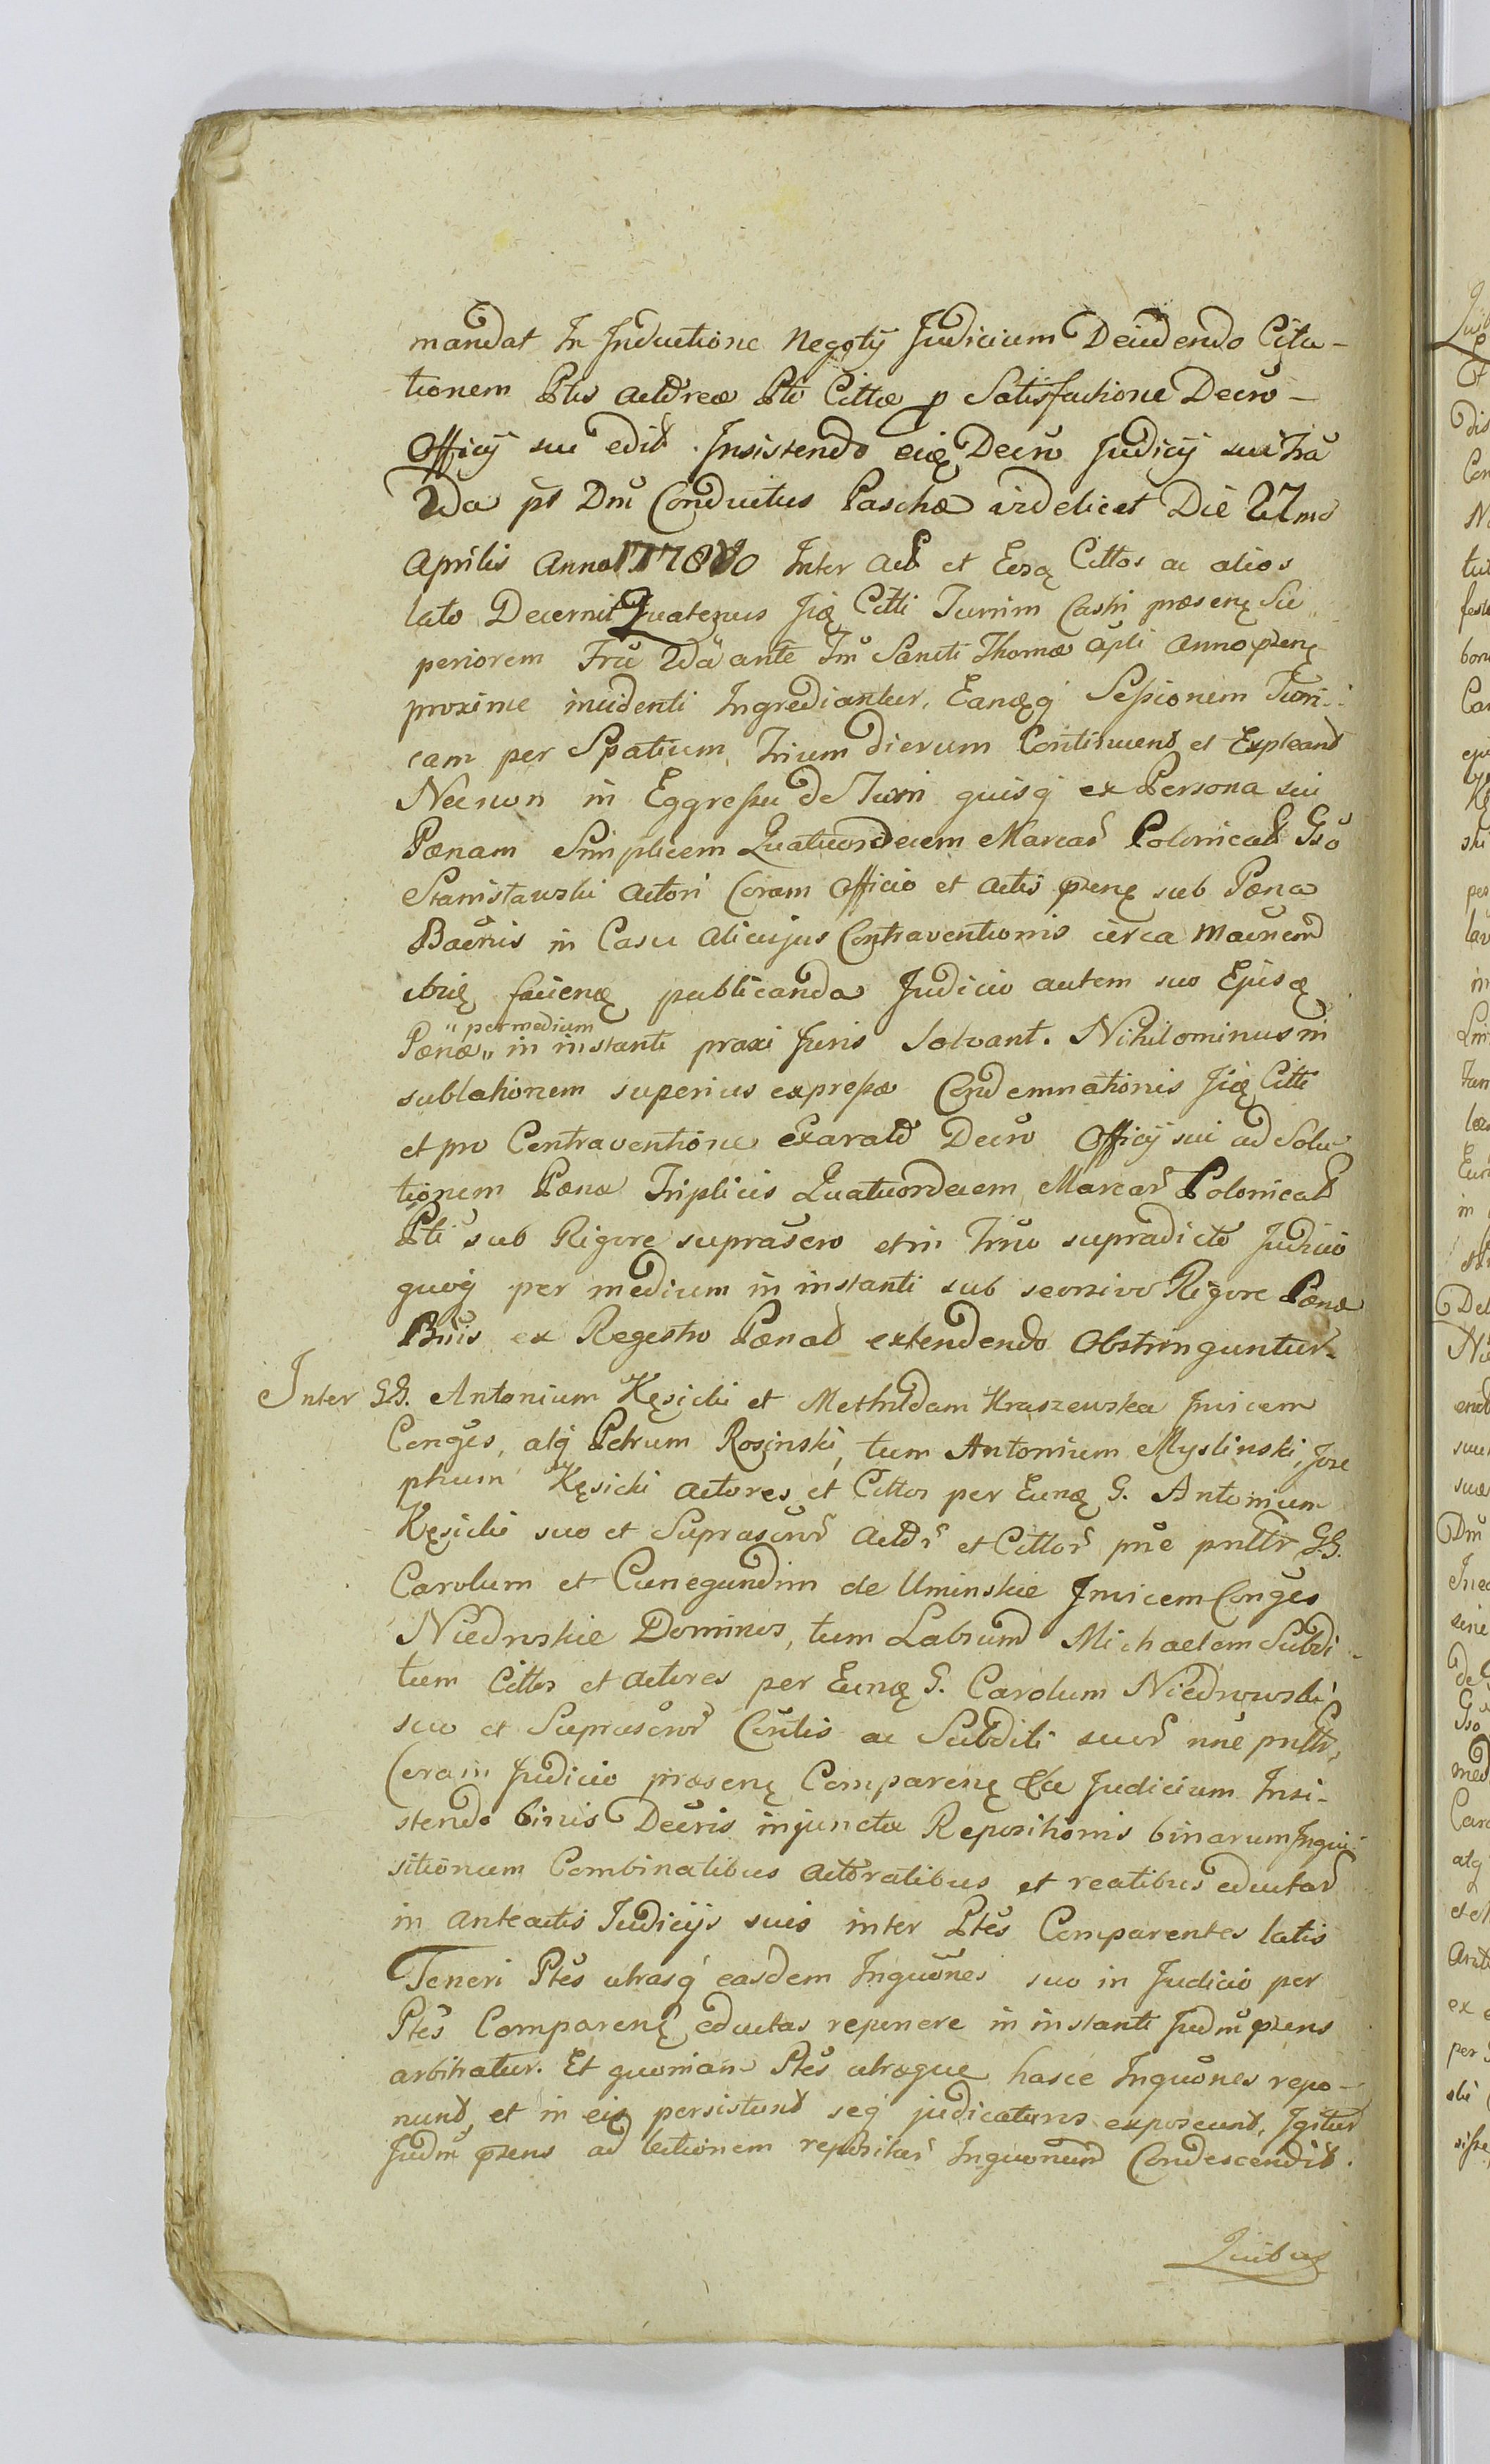 mandat In Inductione Negotij Judicium Decidendo Cita-
tionem Ptis actoreæ Pti Cittæ p Satisfactione Decro-
Officij sui edit. Insistendo eidę Decro Judicij sui Fria
2da pt Dnū Conductus Paschæ videlicet Die 27ma
Aprilis Anno 1780 Inter Act et Eosą Cittos ac alios
lato Decernit Quatenus Iię Citti Turrim Castri præsenę Su
periorem Fria 2da ante Fm Sancti Thomæ Apli Anno præsenę
proxime incidenti Ingrediantur, Eanęq Sessionem Turri-
cam per Spatium Trium dierum Continuent et Expleant
Necnon in Eggressu de Turri quisq ex Persona sui
Pænam Simplicem Quatuordecem Marcar Polonical Gso
Stanisławski Actori Coram Officio et Actis præsenę sub Pæna
Bannis in Casu alicujus Contraventionis circa
ibię facienę publicanda Judicio autem suo Ejusę
per medium
Pænæ in instanti praxi Juris Solvant. Nihilominus in
sublationem superius expressæ Condemnationis Iię Citti
et pro Contraventione Exarat Decro Officij sui ad Solu
tionem Pænæ Triplicis Quatuordecem Marcar Polonical
Pti sub Rigore suprascro et in Trno supradicto Judicio
quoq per medium in instanti sub seorsivo Rigore Pænæ
Bnis ex Regestro Pænal extendendo Obstringuntur.
Inter GG. Antonium Kęsicki et Methildam Kraszewska Invicem
Conges, atq Petrum Rosinski, tum Antonium Myslinski, Jose
phum Kęsicki Actores et Cittos per Eunę G. Antonium
Kęsicki suo et Suprascror Actor et Cittor pne pnttr GG.
Carolum et Cunegundim de Uminskie Invicem Conges
Niedrwskie Dominos, tum Labsund Michaelem Subdi-
tum Cittos et Actores per Eunę G. Carolum Niedrwowski
suo et Suprascror Contis ac Subditi suor nne pnttr,
Coram Judicio præsenę Comparenę Judicium Insi-
stendo binis Decris injuncta Repositionis binarum Inqui-
sitionum Combinatibus Actoratibus et reatibus eductar
in anteactis Judicijs suis inter Ptes Comparentes latis
Teneri Ptes utrasq easdem Inquones suo in Judicio per
Ptes Comparenę eductas reponere in instanti Judm præns
arbitratur. Et quoniam Ptes utræque hasce Inquones repo-
nunt, et in eis persistunt seq judicaturis exposcunt, Igitur
Judm præns ad lectionem repositar Inquonum Condescendit.
Quibus